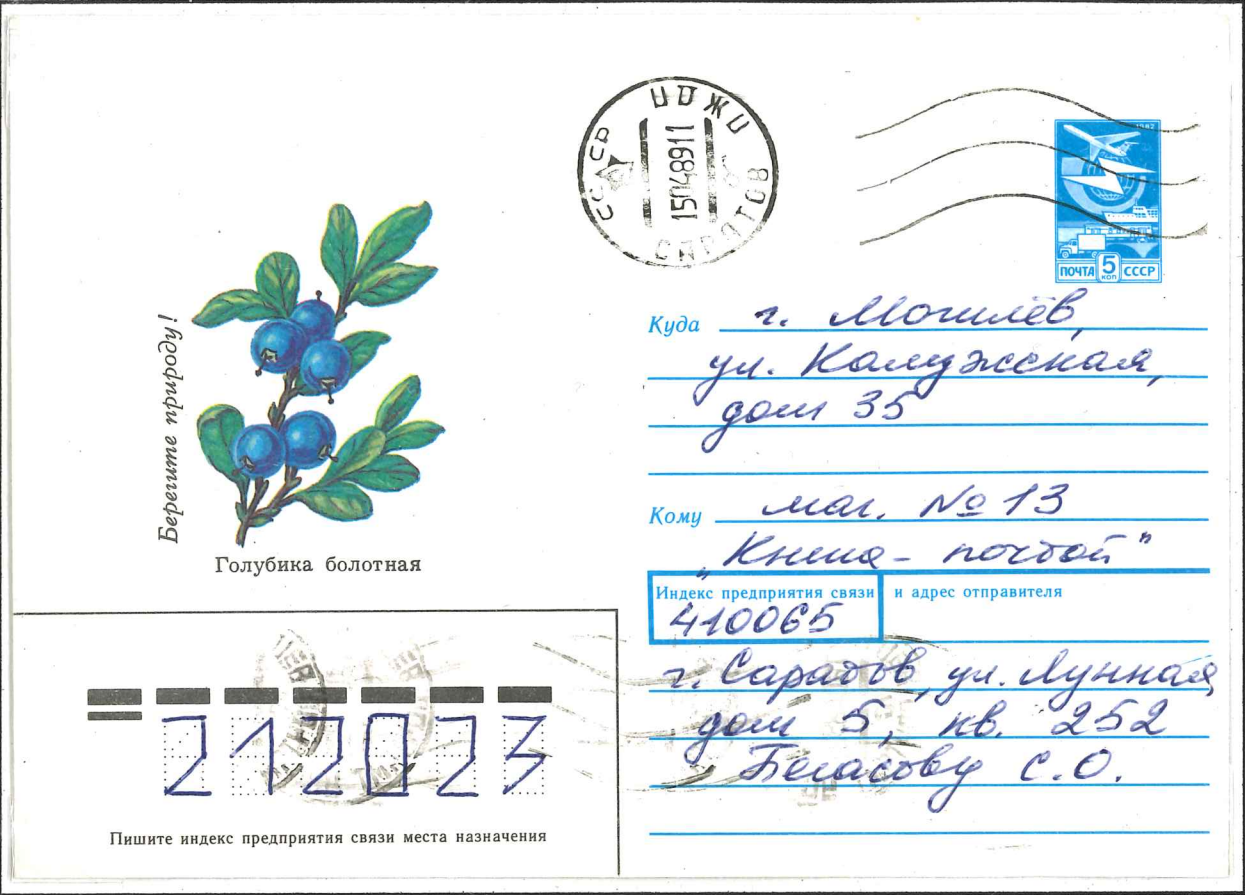 Берегите природу!
Голубика болотная
СССР ПОЖМ САРАТОВ
15048911
1982
ПОЧТА 5 КОП СССР
Куда г. Могилёв,
ул. Калужская,
дом 35
Кому маг. № 13
„Книга - почтой"
Индекс предприятия связи и адрес отправителя
410065
г. Саратов, ул. Лунная
дом 5, кв. 252
Бегасову С.О.
212023
Пишите индекс предприятия связи места назначения